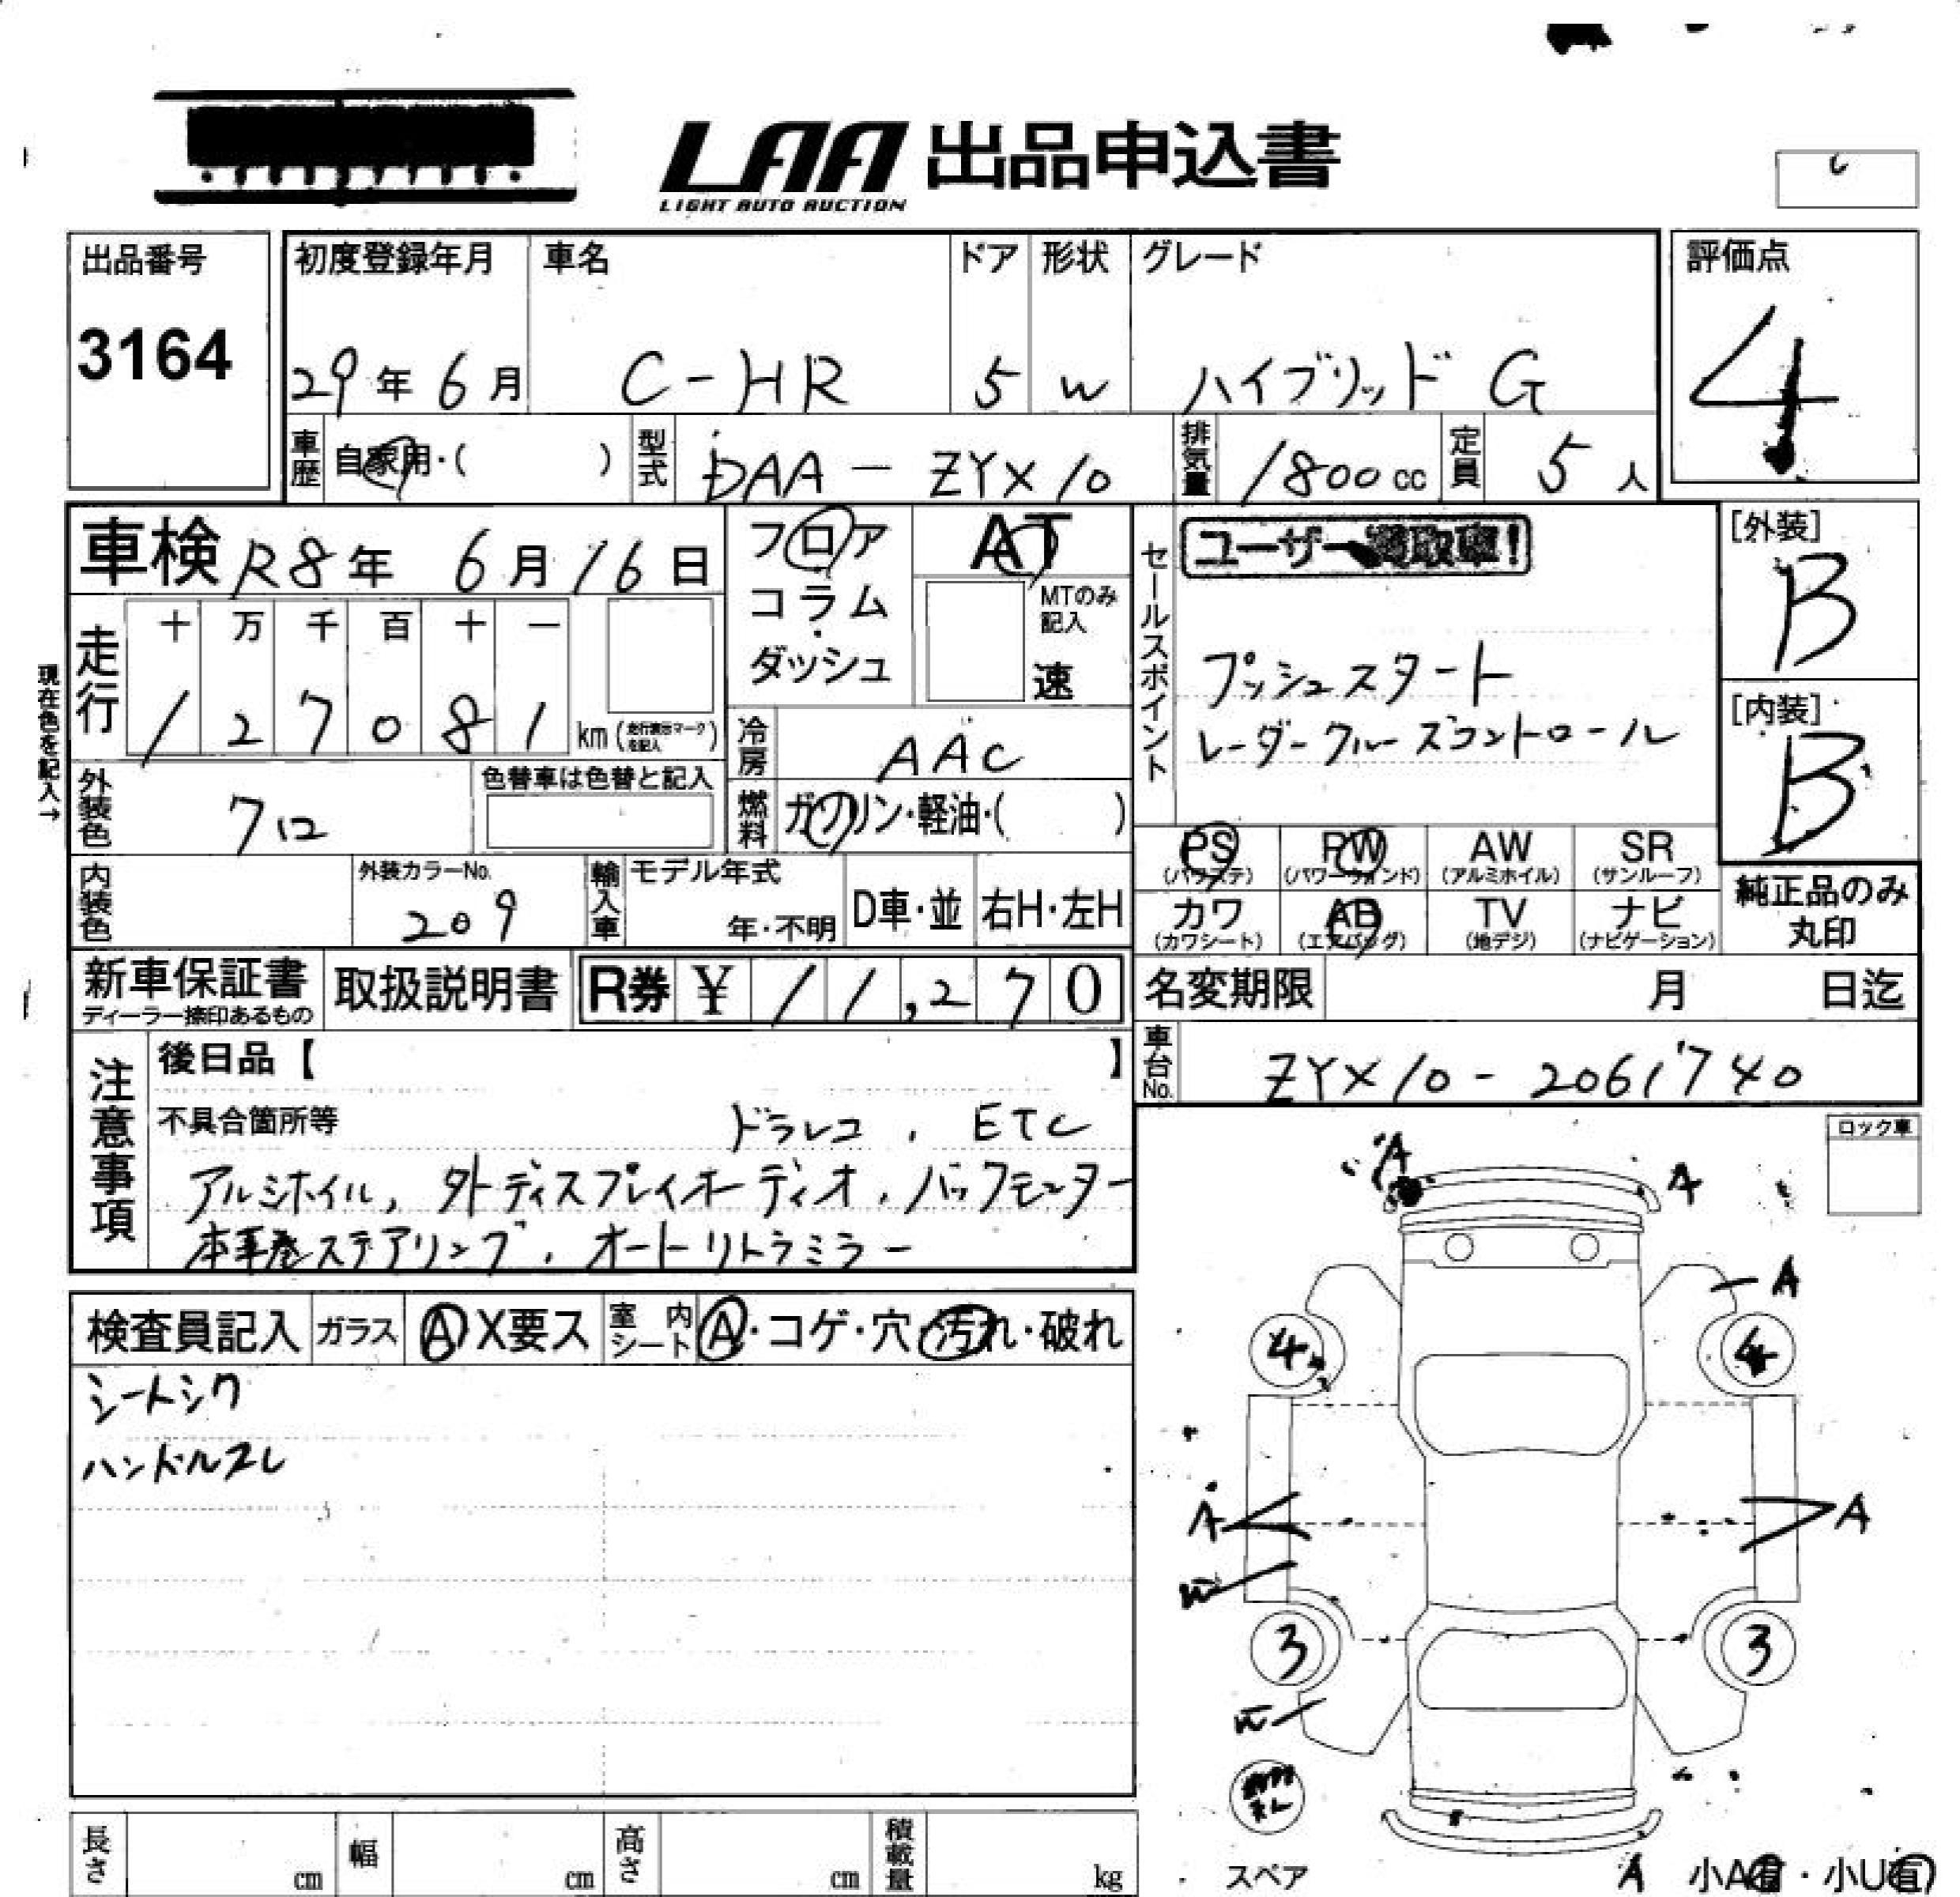 LAA 出品申込書
LIGHT AUTO AUCTION
出品番号
3164
初度登録年月
29年6月
車名
C-HR
ドア
5
形状
W
グレード
ハイブリッド G
評価点
4
車歴 自家用・( )
型式 DAA-ZYX10
排気量 1800cc
定員 5人
車検 R8年 6月 16日
フロア
コラム
・
ダッシュ
AT
MTのみ
記入
速
セールスポイント
ユーザー買取車!
プッシュスタート
レーダークルーズコントロール
[外装]
B
[内装]
B
現在色を記入→
走行
十 万 千 百 十 一
1 2 7 0 8 1 km( )
冷房 AAC
燃料 ガソリン・軽油・( )
外装色 クロ
色替車は色替と記入
内装色
外装カラーNo.
209
輸入車
モデル年式
年・不明
D車・並
右H・左H
PS (パワステ)
PW (パワーウィンド)
AW (アルミホイル)
SR (サンルーフ)
カワ (カワシート)
AB (エアバッグ)
TV (地デジ)
ナビ (ナビゲーション)
純正品のみ
丸印
新車保証書
ディーラー捺印あるもの
取扱説明書
R券 ¥ 11,270
名変期限 月 日迄
車台No. ZYX10-2061740
注意事項
後日品【 】
不具合箇所等
ドラレコ, ETC
アルミホイル, 外ディスプレイオーディオ, バックモニター
本革巻ステアリング, オートリトラミラー
ロック車
検査員記入
ガラス A X要ス
室内シート A・コゲ・穴・汚れ・破れ
シートシワ
ハンドルスレ
A
A
A
4
4
A
A
W
3
3
W
スペア
A 小A有・小U有
長さ cm
幅 cm
高さ cm
積載量 kg